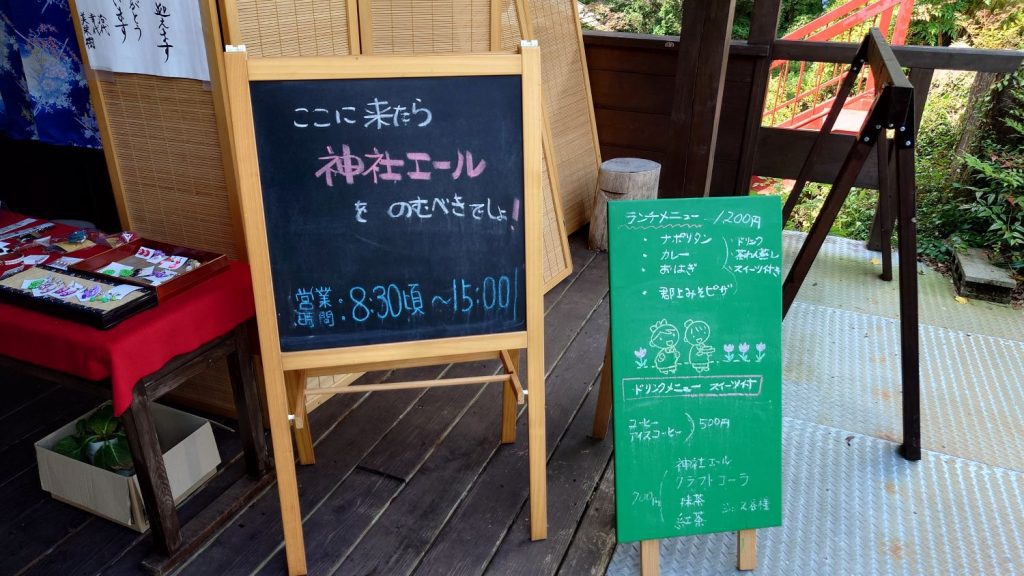 迎えます
ここに来たら
神社エール
を のむべきでしょ!
営業時間:8:30頃～15:00
ランチメニュー 1,200円
・ナポリタン
・カレー
・おはぎ
ドリンク
茶わん蒸し
スイーツ付き
・郡上みそピザ
ドリンクメニュー スイーツ付
コーヒー
アイスコーヒー
500円
神社エール
クラフトコーラ
抹茶
紅茶
700円